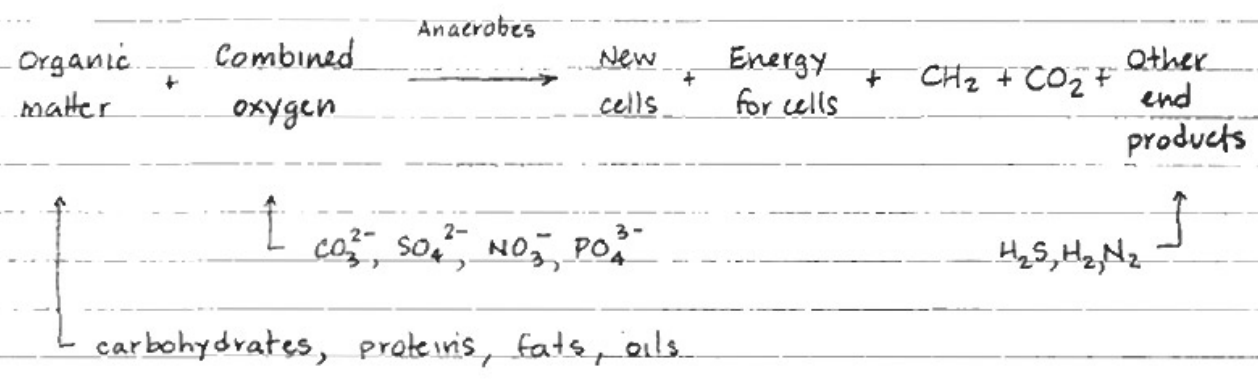 Anaerobes
Organic matter + Combined oxygen ⟶ New cells + Energy for cells + CH₂ + CO₂ + Other end products
CO₃²⁻, SO₄²⁻, NO₃⁻, PO₄³⁻
H₂S, H₂, N₂
carbohydrates, proteins, fats, oils